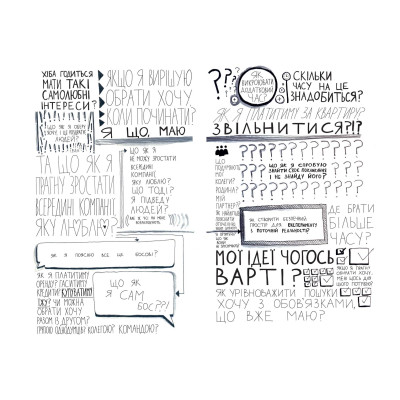 ХІБА ГОДИТЬСЯ
МАТИ ТАКІ
САМОЛЮБНІ
ІНТЕРЕСИ?
ЯКЩО Я ВИРІШУЮ
ОБРАТИ ХОЧУ
КОЛИ ПОЧИНАТИ?
Я ЩО, МАЮ
ЗВІЛЬНИТИСЯ?!?
ЩО ЯК Я
ЛЮДЕЙ?
ТА ЩО ЯК Я
ПРАГНУ ЗРОСТАТИ
ВСЕРЕДИНІ КОМПАНІЇ
ЯКУ ЛЮБЛЮ?
ЩО ЯК Я
НЕ МОЖУ ЗРОСТАТИ
ВСЕРЕДИНІ
КОМПАНІЇ,
ЯКУ ЛЮБЛЮ?
ЩО ТОДІ?
Я ПІДВЕДУ
ЛЮДЕЙ?
ЯК Я ПОЯСНЮ ВСЕ ЦЕ БОСОВІ?
ЯК Я ПЛАТИТИМУ
ОРЕНДУ? ГАСИТИМУ
КРЕДИТИ? КУПУВАТИМУ
ЇЖУ? ЧИ МОЖНА
ОБРАТИ ХОЧУ
РАЗОМ ІЗ ДРУГОМ?
ГРУПОЮ ОДНОДУМЦІВ? КОЛЕГОЮ? КОМАНДОЮ?
ЩО ЯК
Я САМ
БОС??!
???
ЯК
ВИКРОЮВАТИ
ДОДАТКОВИЙ
ЧАС?
СКІЛЬКИ
ЧАСУ НА ЦЕ
ЗНАДОБИТЬСЯ?
ЯК Я ПЛАТИТИМУ ЗА КВАРТИРУ?
ЩО
ПОДУМАЮТЬ
МОЇ
КОЛЕГИ?
РОДИНА?
МІЙ
ПАРТНЕР?
ЩО ЯК Я СПРОБУЮ
ЗНАЙТИ СВОЄ ПОКЛИКАННЯ
І НЕ ЗНАЙДУ ЙОГО?
ЯК СТВОРИТИ БЕЗПЕЧНИЙ
ПРОСТІР ДЛЯ ЕКСПЕРИМЕНТУ
В ПОТОЧНІЙ РЕАЛЬНОСТІ?
ДЕ БРАТИ
БІЛЬШЕ
ЧАСУ?
МОЇ ІДЕЇ ЧОГОСЬ
ВАРТІ?
ЯК УРІВНОВАЖИТИ ПОШУКИ
ХОЧУ З ОБОВ'ЯЗКАМИ,
ЩО ВЖЕ МАЮ?